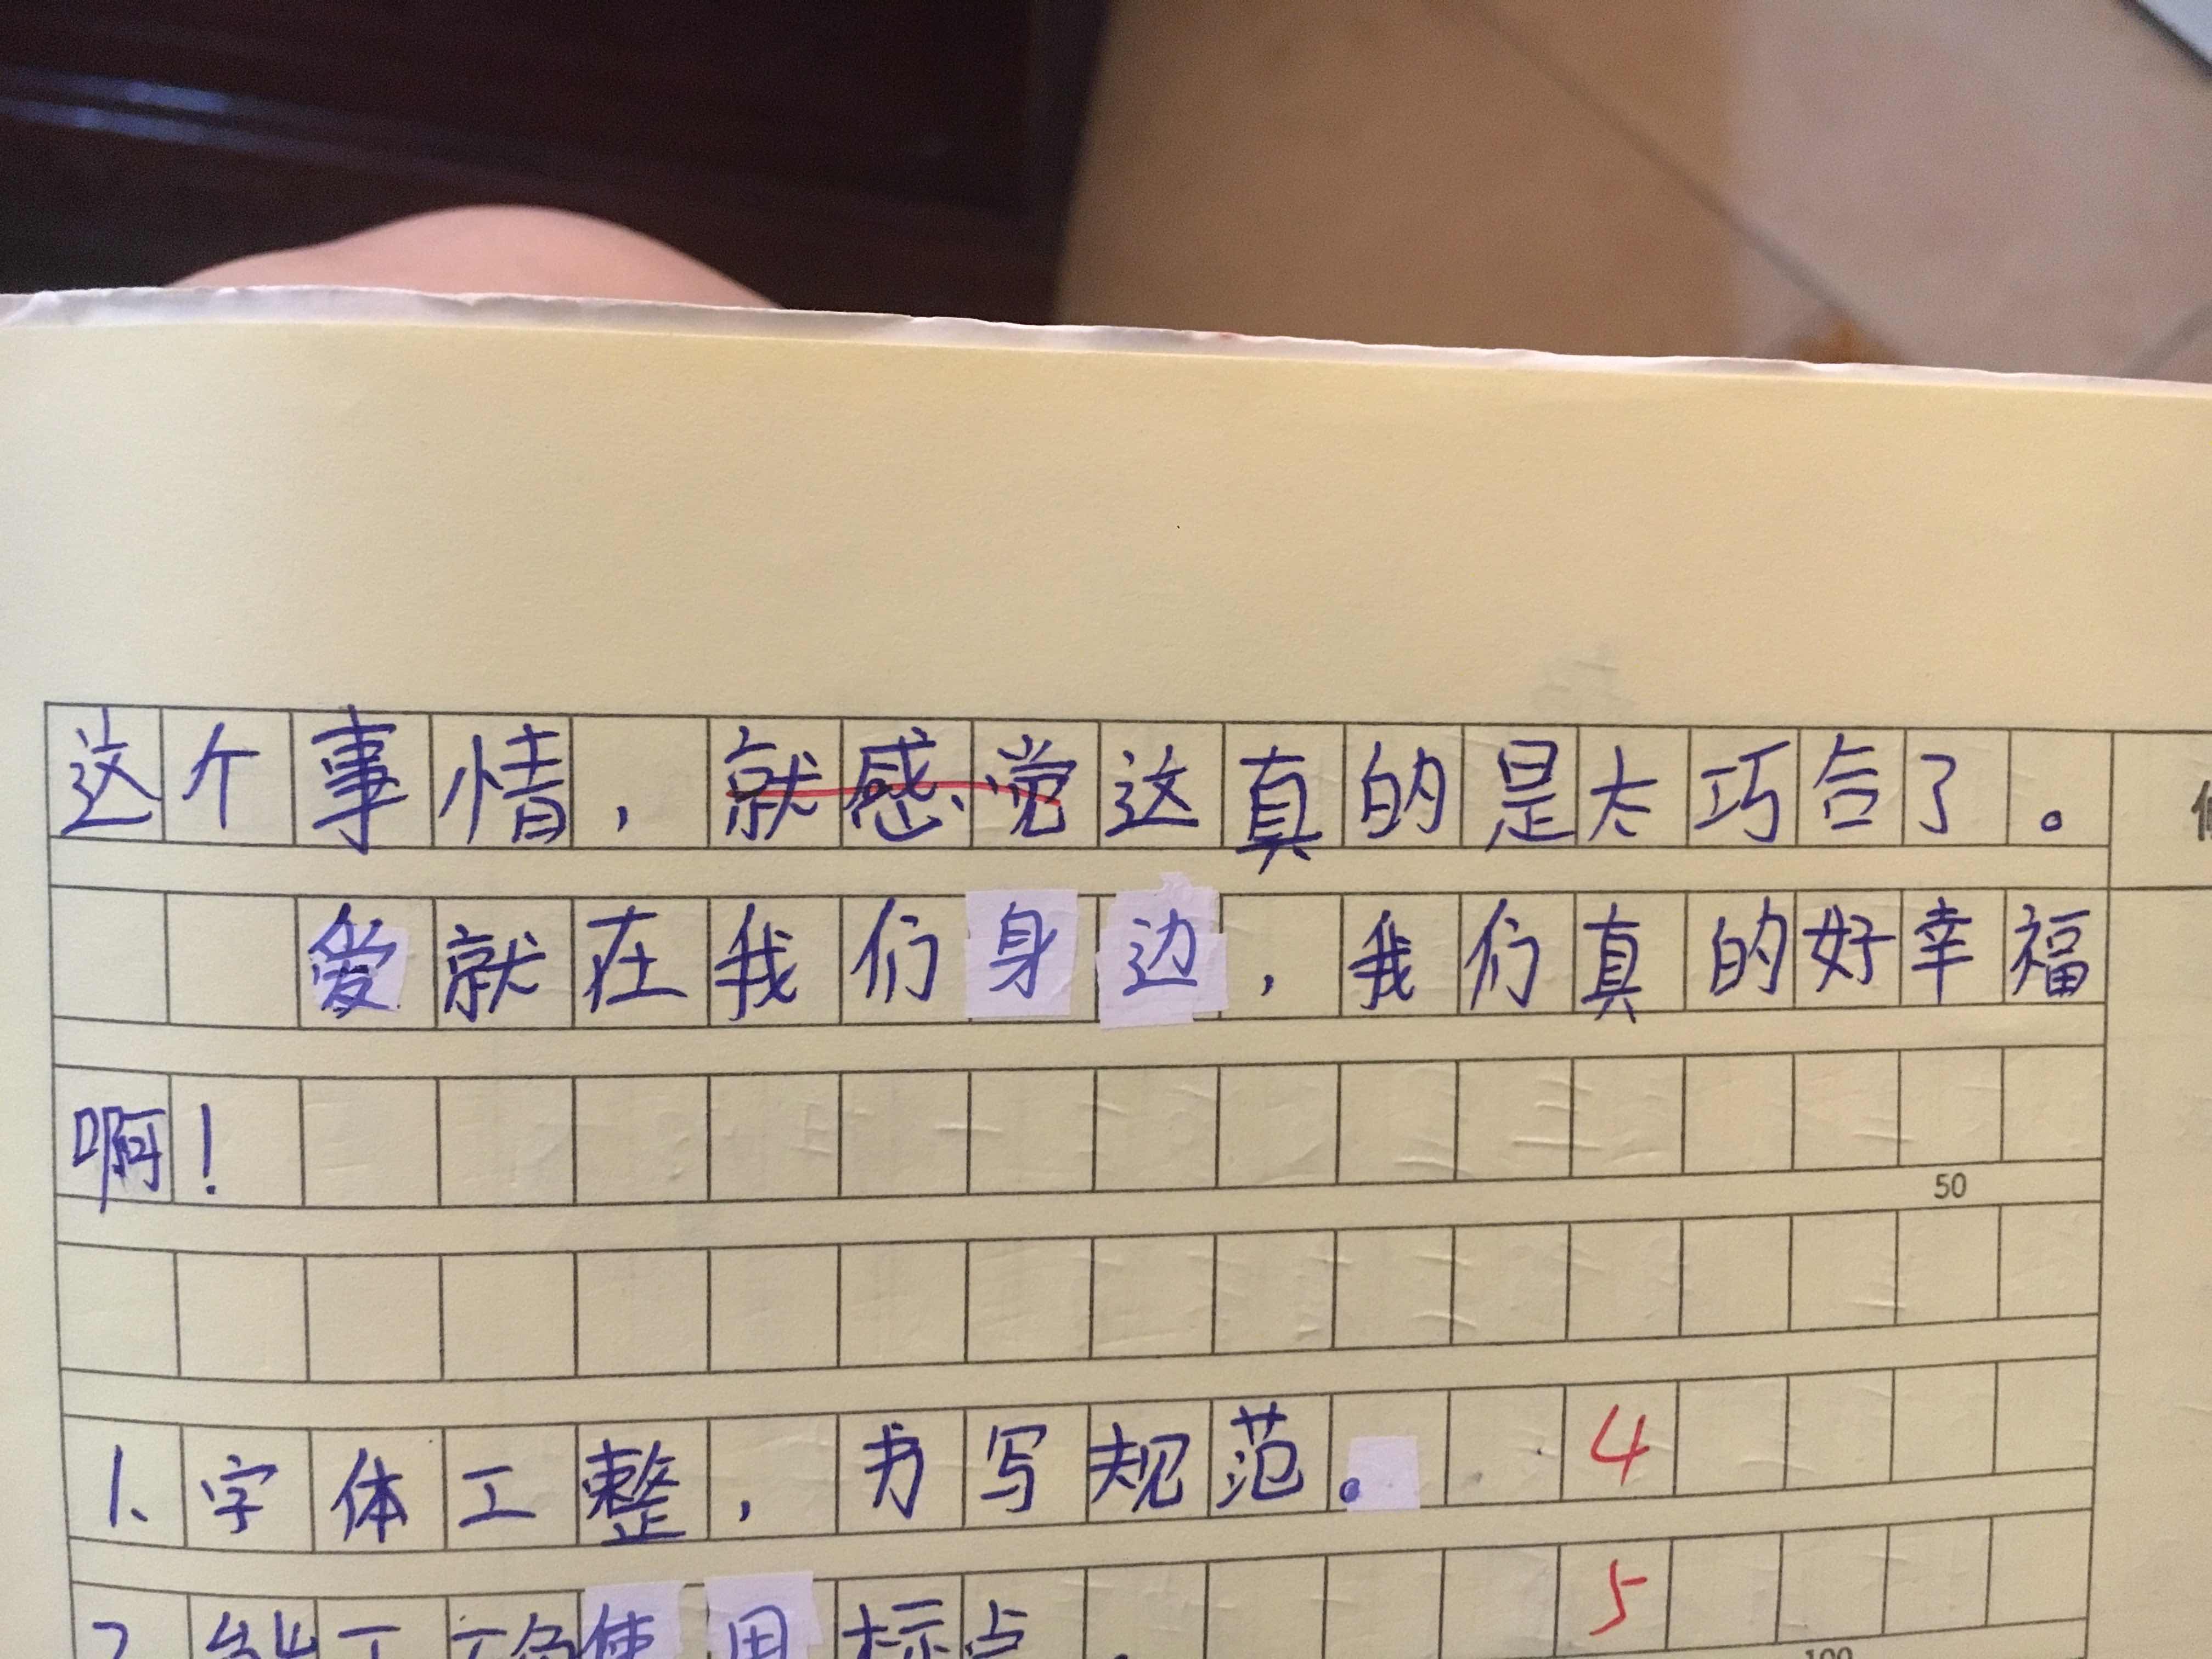 这个事情，就感觉这真的是太巧合了。
爱就在我们身边，我们真的好幸福
啊！
50
1、字体工整，书写规范。 4
2 能正确使用标点。 5
100